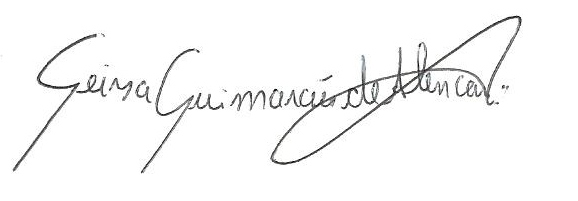 Geisa Guimarães de Alencar